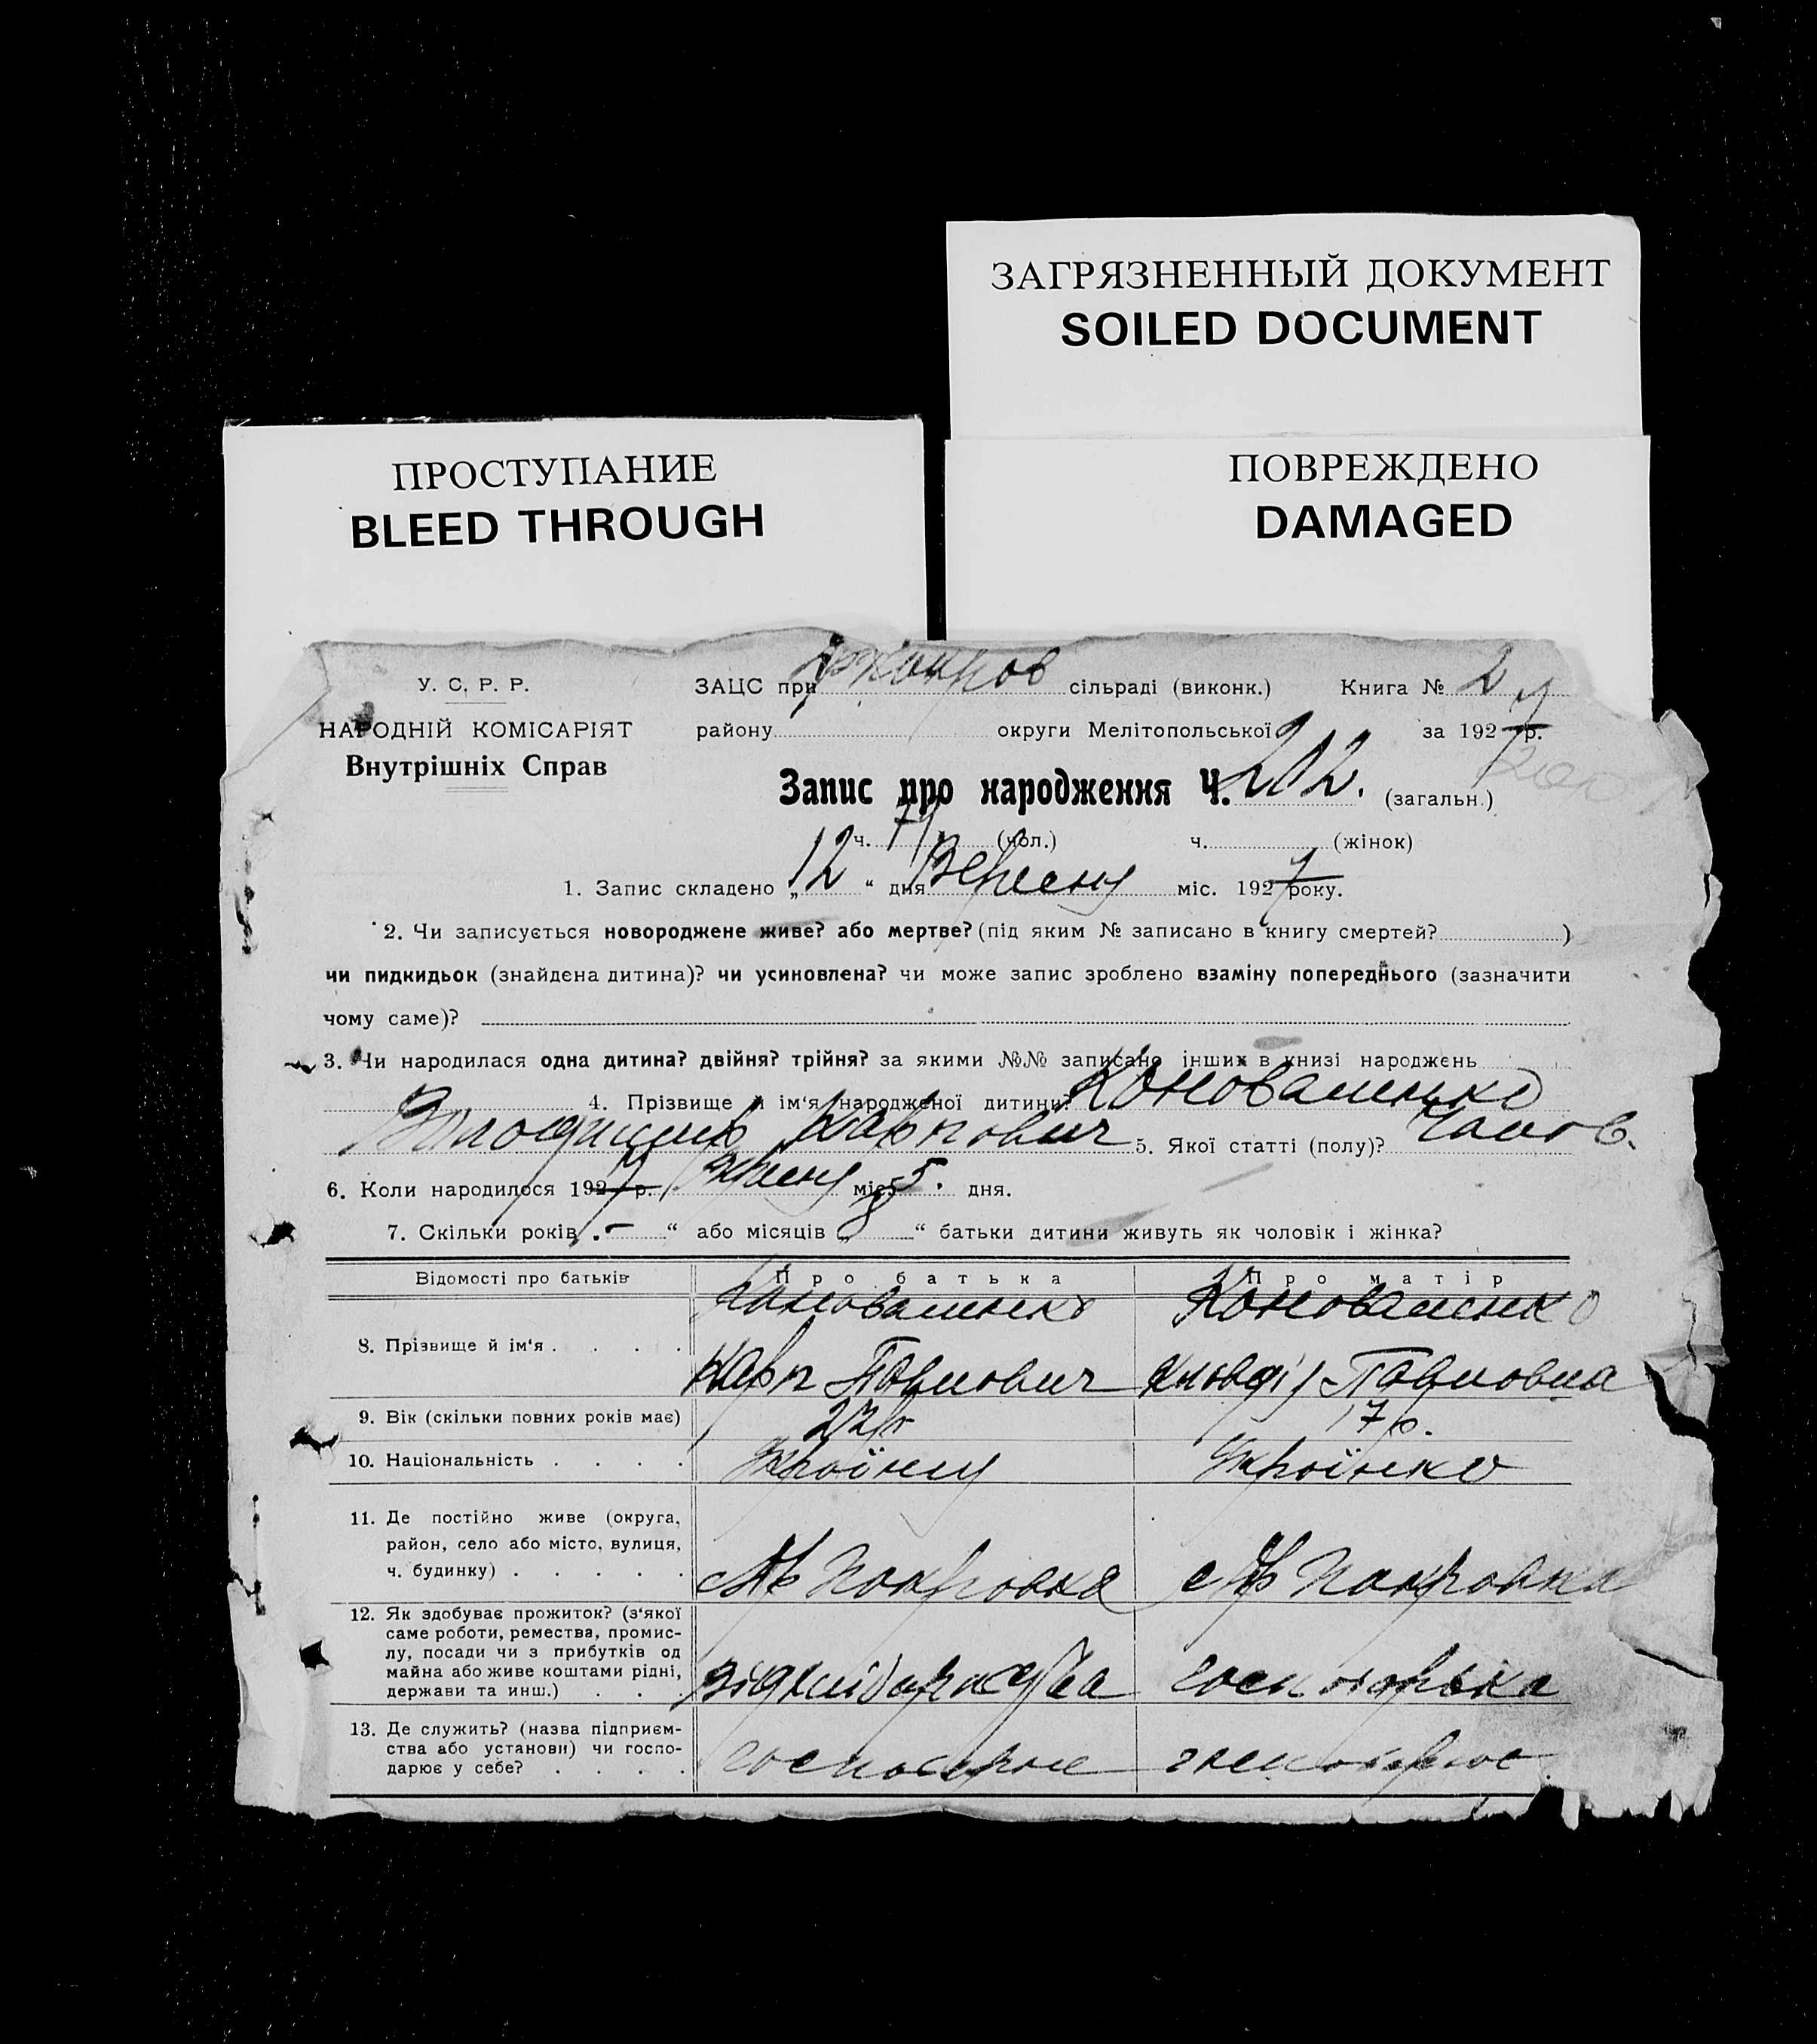 ЗАГРЯЗНЕННЫЙ ДОКУМЕНТ
SOILED DOCUMENT
ПРОСТУПАНИЕ
BLEED THROUGH
ПОВРЕЖДЕНО
DAMAGED
У. С. Р. Р.
НАРОДНІЙ КОМІСАРІЯТ
Внутрішніх Справ
ЗАЦС при сільраді (виконк.) Книга № 2
району округи Мелітопольської за 1927 р.
Запис про народження Ч. 202. (загальн.)
ч. (чол.) ч. (жінок)
1. Запис складено „12“ дня Вересня міс. 1927 року.
2. Чи записується новороджене живе? або мертве? (під яким № записано в книгу смертей? )
чи пидкидьок (знайдена дитина)? чи усиновлена? чи може запис зроблено взаміну попереднього (зазначити
чому саме)?
3. Чи народилася одна дитина? двійня? трійня? за якими №№ записано інших в книзі народжень
4. Прізвище й ім‘я народженої дитини? Коноваленко
Володимир Карпович 5. Якої статті (полу)? Чолов.
6. Коли народилося 1927 р. Вересня міс. 5. дня.
7. Скільки років „-“ або місяців „8“ батьки дитини живуть як чоловік і жінка?
Відомості про батьків Про батька Про матір
8. Прізвище й ім‘я . . . . Коноваленко Карп Павлович Коноваленко Клавдія Павловна
9. Вік (скільки повних років має) 22р 17р.
10. Національність . . . . Українец Українка
11. Де постійно живе (округа,
район, село або місто, вулиця,
ч. будинку) . . . . . Покровка Покровка
12. Як здобуває прожиток? (з‘якої
саме роботи, ремества, промис-
лу, посади чи з прибутків од
майна або живе коштами рідні,
держави та инш.) . . .
13. Де служить? (назва підприєм-
ства або установи) чи госпо-
дарює у себе? . . . .